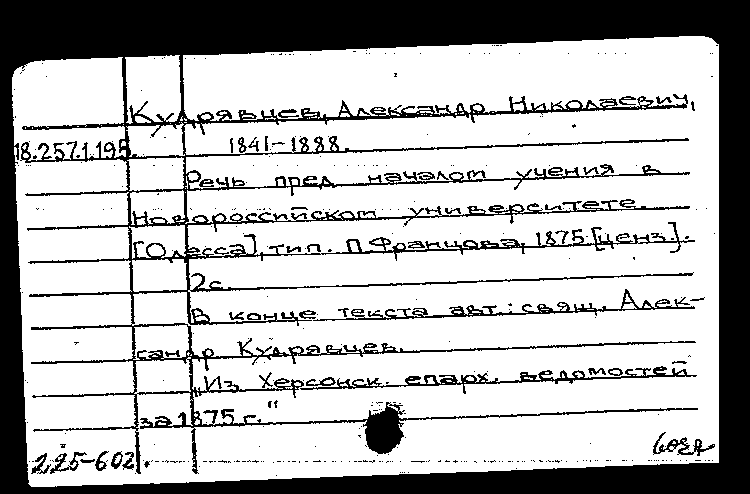 Кудрявцев, Александр Николаевич,
18.257.1.195. 1841-1888.
Речь пред началом учения в
Новороссийском университете.
[Одесса], тип. П. Францова, 1875 [ценз.].
2 с.
В конце текста авт.: свящ. Алек-
сандр Кудрявцев.
„Из Херсонск. епарх. ведомостей
за 1875 г."
2,25-602.